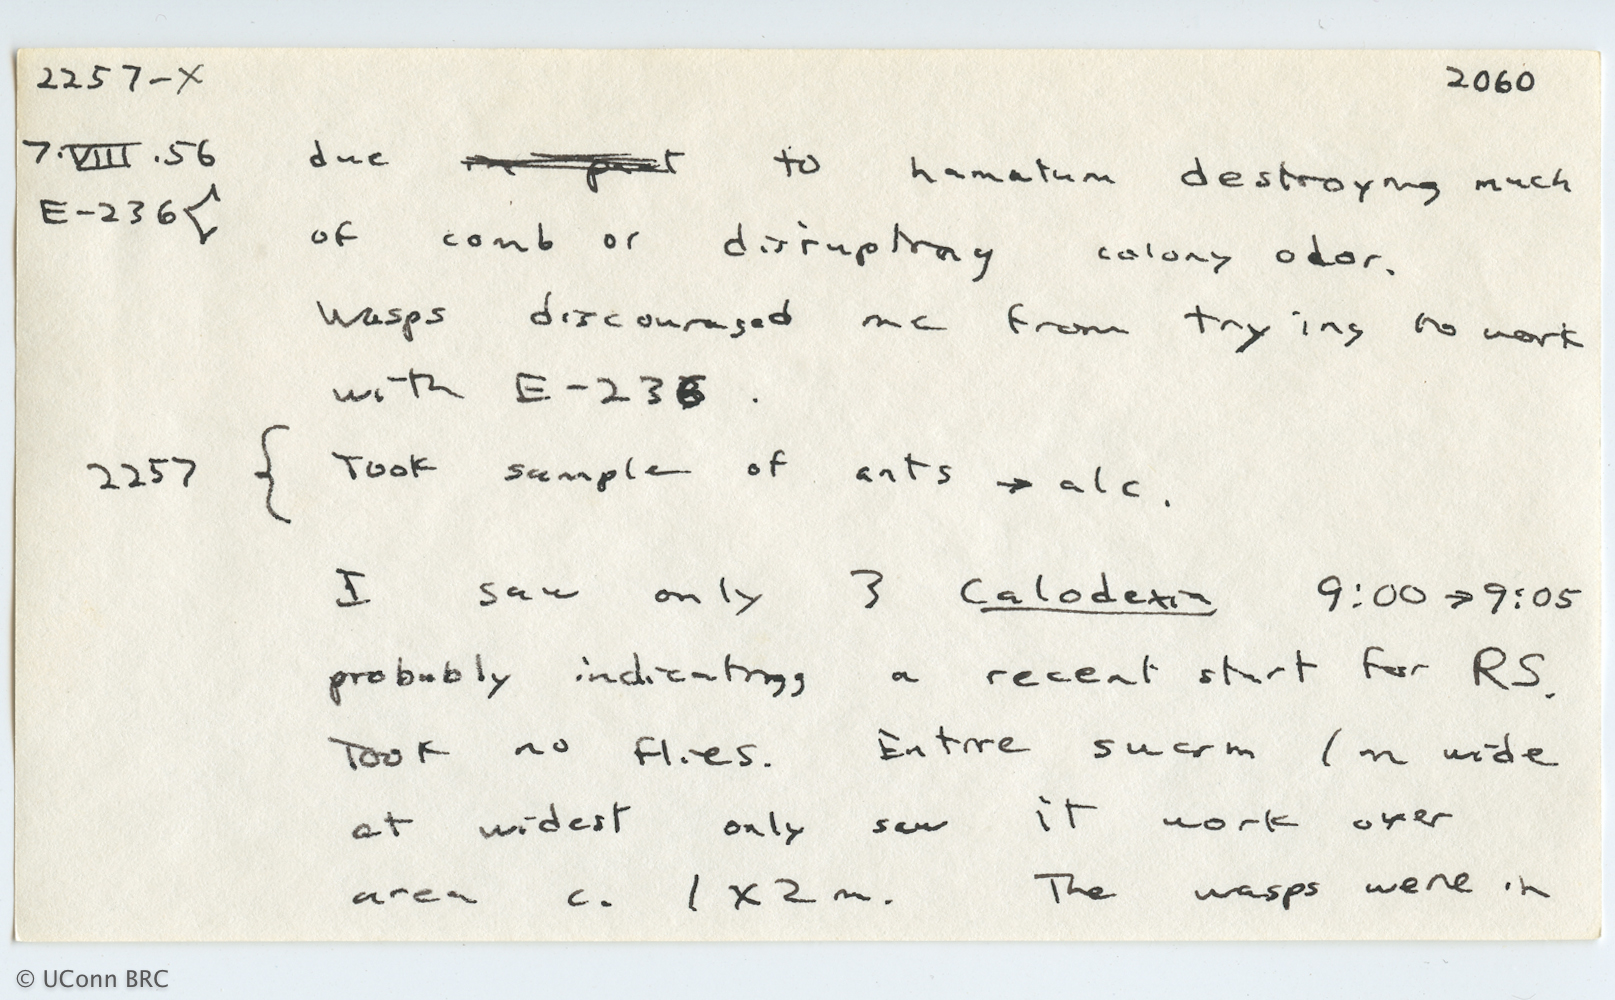 2257-X 2060
7.VIII.56 due in part to hamatum destroying much
E-236 of comb or disrupting colony odor.
Wasps discouraged me from trying to work
with E-236.
2257 { Took sample of ants → alc.
I saw only 3 Calodexia 9:00 → 9:05
probably indicating a recent start for RS.
Took no flies. Entire swarm 1 m wide
at widest only saw it work over
area c. 1 x 2 m. The wasps were in
© UConn BRC